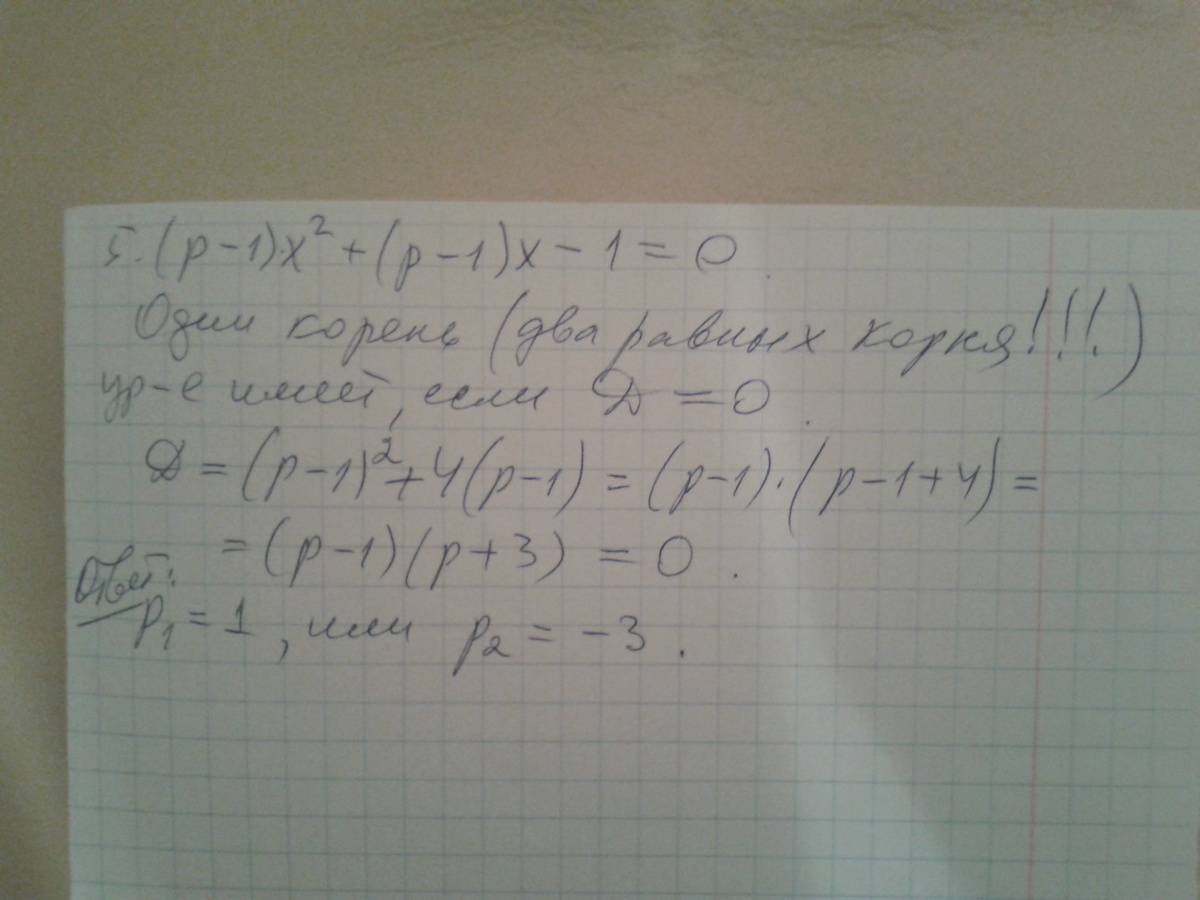 5. (p-1)·x² + (p-1)x - 1 = 0.
Один корень (два равных корня!!!)
ур-е имеет, если D = 0.
D = (p-1)² + 4(p-1) = (p-1)·(p-1+4) =
= (p-1)(p+3) = 0.
Ответ:
p₁ = 1, или p₂ = -3.